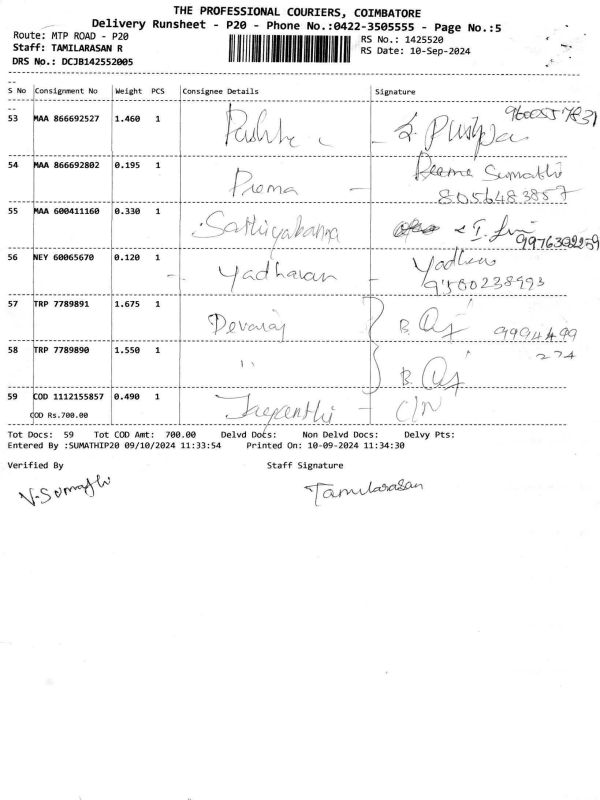 THE PROFESSIONAL COURIERS, COIMBATORE
Delivery Runsheet - P20 - Phone No.:0422-3505555 - Page No.:5
Route: MTP ROAD - P20 RS No.: 1425520
Staff: TAMILARASAN R RS Date: 10-Sep-2024
DRS No.: DCJB142552005
S No Consignment No Weight PCS Consignee Details Signature
53 MAA 866692527 1.460 1 Pushpa - S. Pushpa
54 MAA 866692802 0.195 1 Prema - Prema Sumathi
8056483857
55 MAA 600411160 0.330 1 Sathiyakanna
9976302259
56 NEY 60065670 0.120 1 - Yadhavan - Yadhav
57 TRP 7789891 1.675 1 Devaraj B.
9994499
274
58 TRP 7789890 1.550 1 " B.
59 COD 1112155857 0.490 1 Jayanthi - C/N
COD Rs.700.00
Tot Docs: 59 Tot COD Amt: 700.00 Delvd Docs: Non Delvd Docs: Delvy Pts:
Entered By :SUMATHIP20 09/10/2024 11:33:54 Printed On: 10-09-2024 11:34:30
Verified By Staff Signature
V. Sumathi Tamilarasan